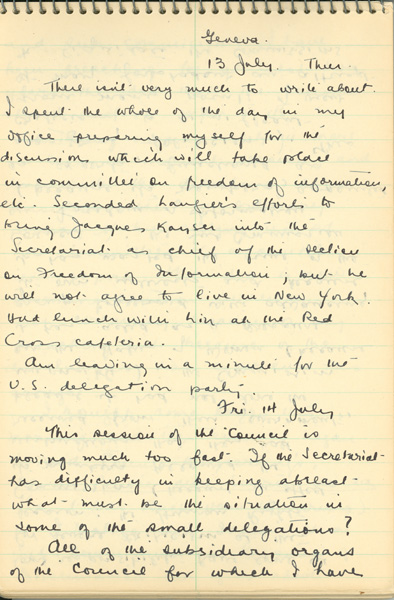 Geneva.
13 July. Thur.
There isn't very much to write about.
I spent the whole of the day in my
office preparing myself for the
discussions which will take place
in committee on freedom of information,
etc. Seconded Laugier's efforts to
bring Jacques Kayser into the
Secretariat as chief of the section
on Freedom of Information; but he
will not agree to live in New York!
Had lunch with him at the Red
Cross cafeteria.
Am leaving in a minute for the
U.S. delegation party.
Fri. 14 July
This session of the Council is
moving much too fast. If the Secretariat
has difficulty in keeping abreast
what must be the situation in
some of the small delegations?
All of the subsidiary organs
of the Council for which I have